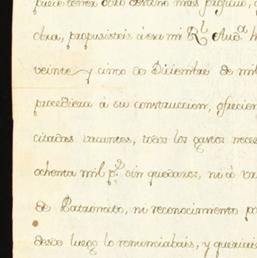 puede tener otro destino mas propicio,
obra, propusisteis á esa mi Rl Auda
veinte y cinco de Diciembre de mil
procediera á su construccion, ofrecien
citadas vacantes, todos los gastos neces
ochenta mil ps sin quedaros, ni á
de Patronato, ni reconocimiento
desde luego lo renunciabais, y queriais